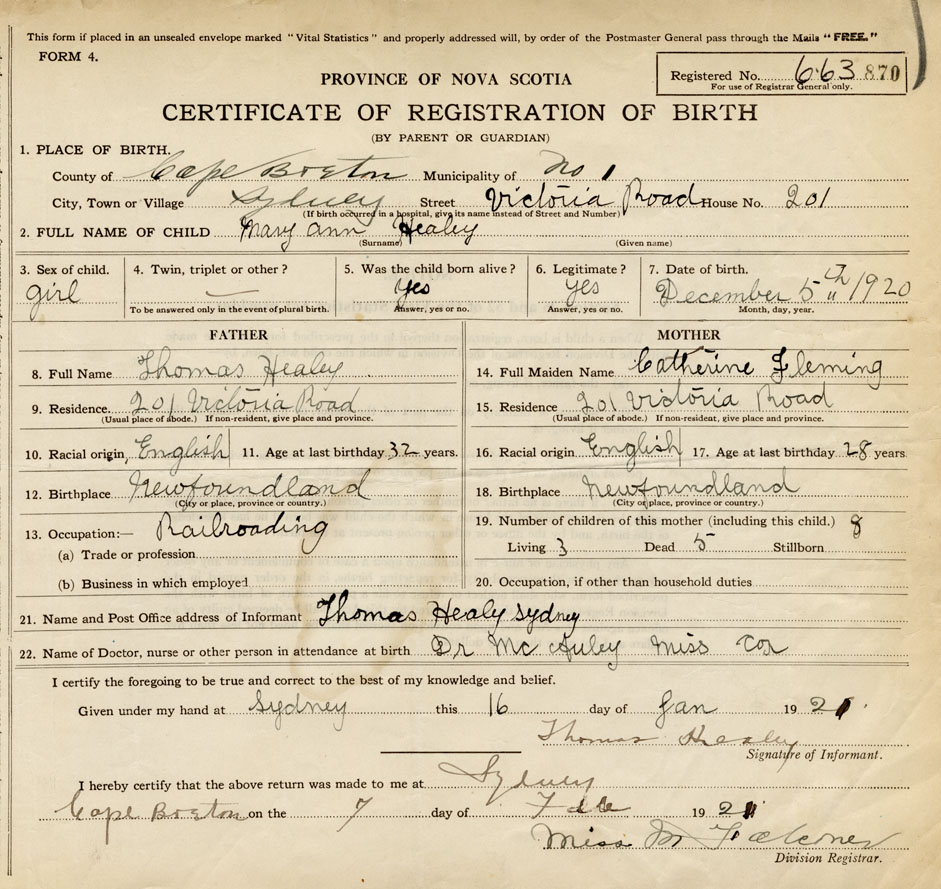 This form if placed in an unsealed envelope marked "Vital Statistics" and properly addressed will, by order of the Postmaster General pass through the Mails "FREE."
FORM 4.
Registered No. 663 870
For use of Registrar General only.
PROVINCE OF NOVA SCOTIA
CERTIFICATE OF REGISTRATION OF BIRTH
(BY PARENT OR GUARDIAN)
1. PLACE OF BIRTH.
County of Cape Breton Municipality of No 1
City, Town or Village Sydney Street Victoria Road House No. 201
(If birth occurred in a hospital, give its name instead of Street and Number)
2. FULL NAME OF CHILD Mary Ann Healey
(Surname) (Given name)
3. Sex of child. 4. Twin, triplet or other? 5. Was the child born alive? 6. Legitimate? 7. Date of birth.
girl — Yes yes December 5th 1920
To be answered only in the event of plural birth. Answer, yes or no. Answer, yes or no. Month, day, year.
FATHER MOTHER
8. Full Name Thomas Healey 14. Full Maiden Name Catherine Fleming
9. Residence. 201 Victoria Road 15. Residence 201 Victoria Road
(Usual place of abode.) If non-resident, give place and province. (Usual place of abode.) If non-resident, give place and province.
10. Racial origin, English 11. Age at last birthday. 32 years. 16. Racial origin English 17. Age at last birthday 28 years
12. Birthplace Newfoundland 18. Birthplace Newfoundland
(City or place, province or country.) (City or place, province or country.)
13. Occupation:— Railroading 19. Number of children of this mother (including this child.) 8
(a) Trade or profession Living 3 Dead 5 Stillborn
(b) Business in which employed 20. Occupation, if other than household duties
21. Name and Post Office address of Informant Thomas Healy Sydney
22. Name of Doctor, nurse or other person in attendance at birth Dr McAuley Miss Cox
I certify the foregoing to be true and correct to the best of my knowledge and belief.
Given under my hand at Sydney this 16 day of Jan 1921
Thomas Healey
Signature of Informant.
I hereby certify that the above return was made to me at Sydney
Cape Breton on the 7 day of Feb 1921
Miss M Falconer
Division Registrar.